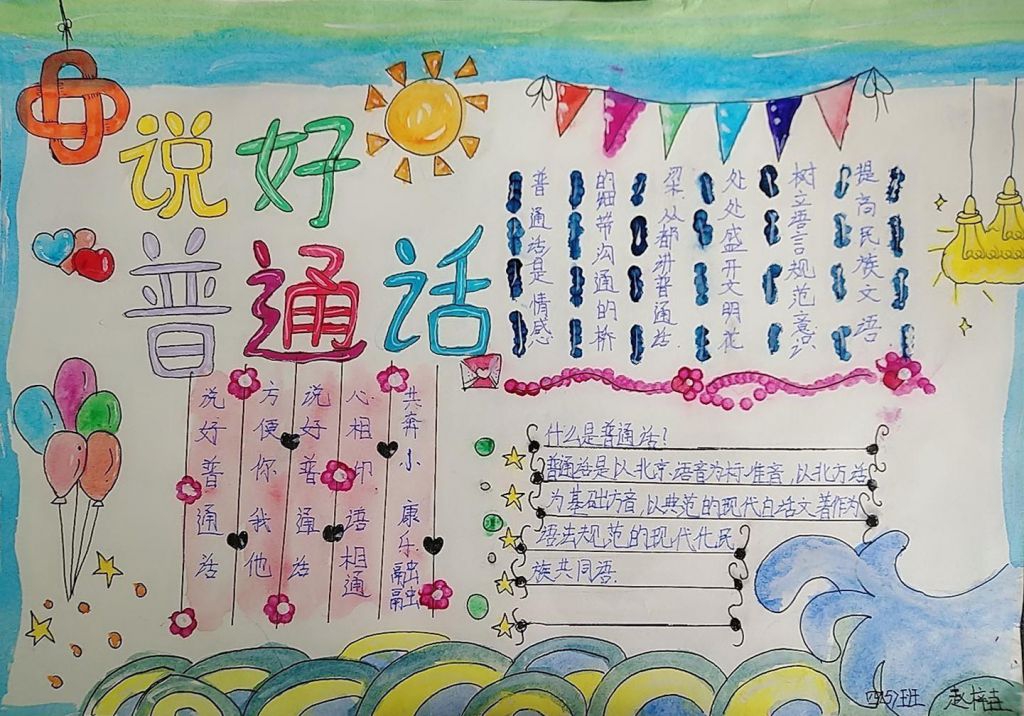 说好
普通话
普通话是情感
的纽带沟通的桥
梁从都讲普通话
处处盛开文明花
树立语言规范意识
提高民族文语
说好普通话
方便你我他
说好普通话
心相印语相通
共奔小康乐融融
什么是普通话?
普通话是以北京语音为标准音,以北方话
为基础方音,以典范的现代白话文著作为
语法规范的现代化民
族共同语.
四(5)班